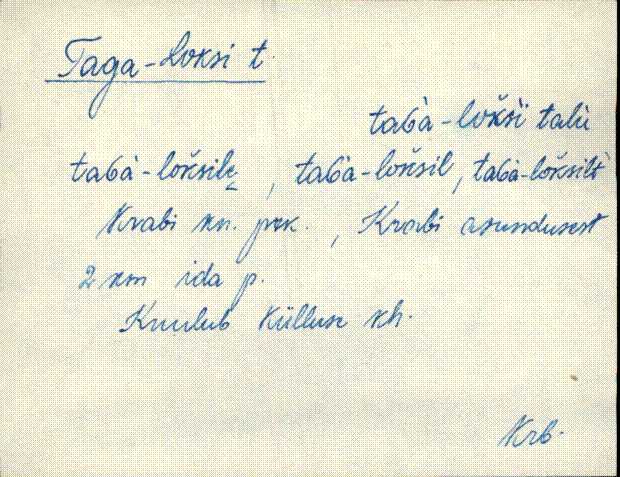 Taga-Loksi t.
taɢà-lokšì talù
taɢà-lokšilę, taɢà-lokšil, taɢà-lokšilt
Krabi kn. prk., Krabi asundusest
2 km ida p.
Kuulub Külluse kh.
Krb.